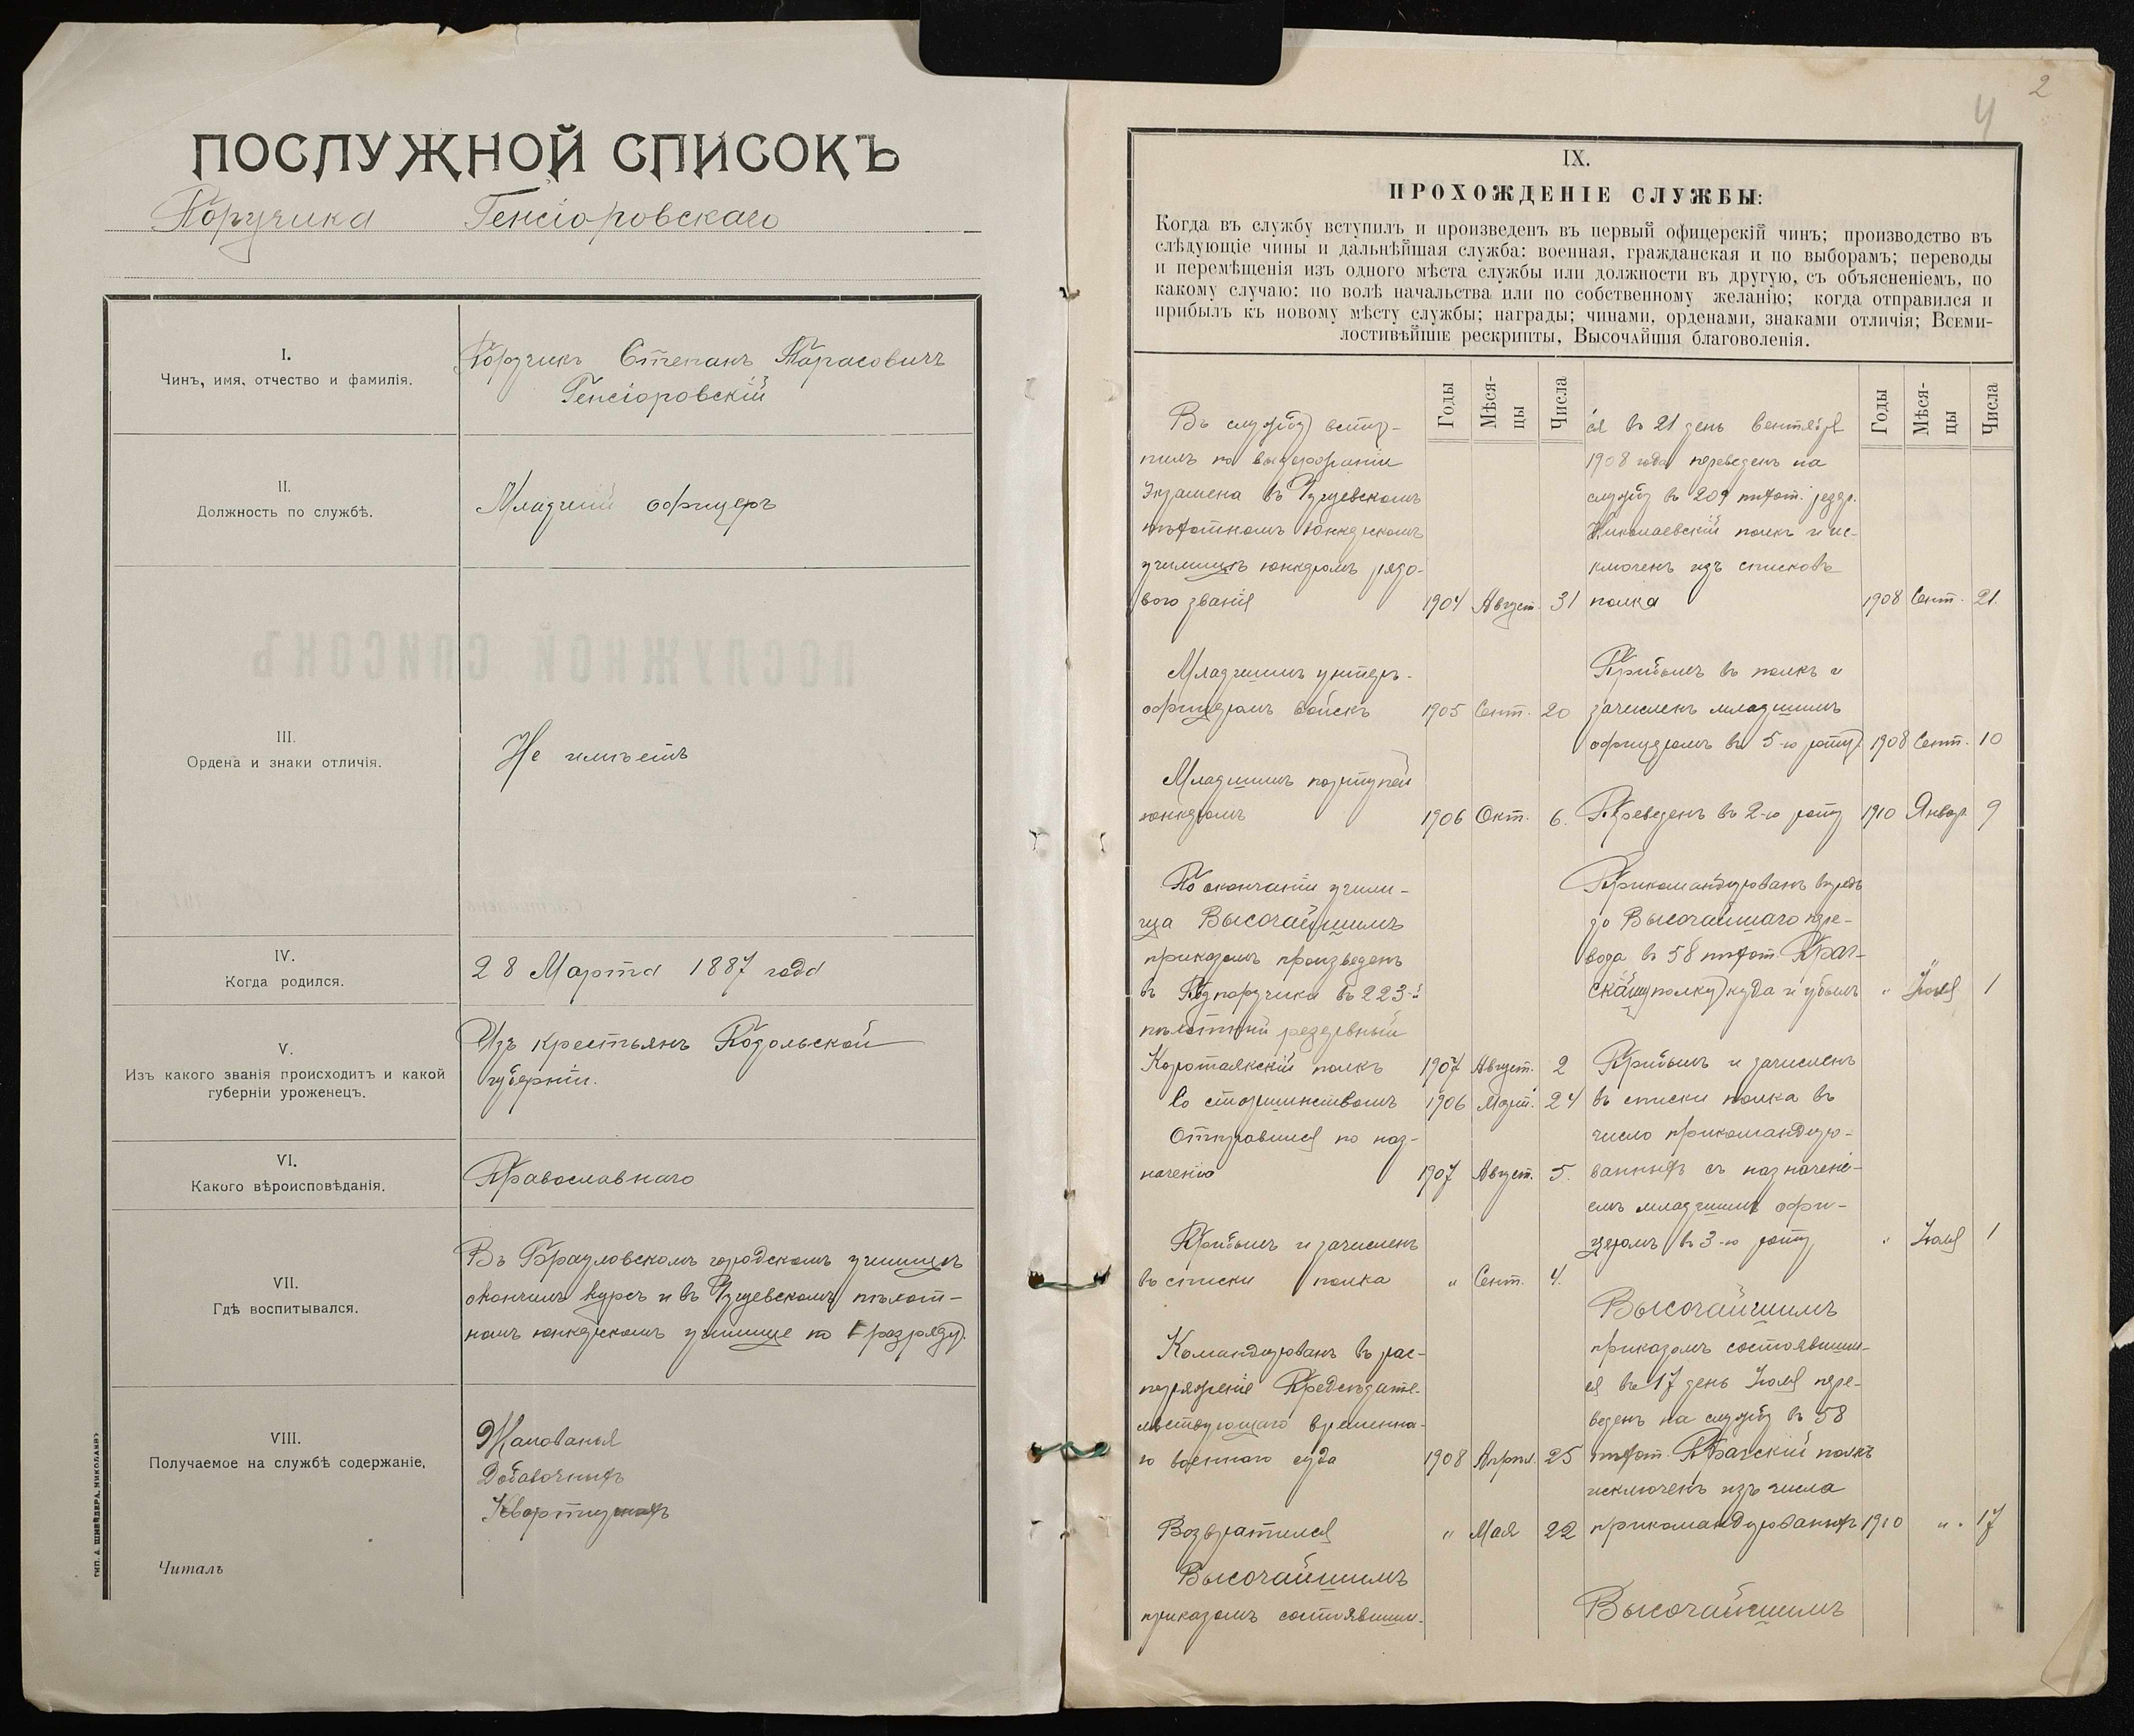 ПОСЛУЖНОЙ СПИСОКЪ
Поручика Генсіоровскаго
I.
Чинъ, имя, отчество и фамилія.
Поручикъ Степанъ Тарасовичъ
Генсіоровскій
II.
Должность по службѣ.
Младшій офицеръ
III.
Ордена и знаки отличія.
Не имѣетъ
IV.
Когда родился.
28 Марта 1887 года
V.
Изъ какого званія происходитъ и какой
губерніи уроженецъ.
Изъ крестьянъ Подольской
губерніи.
VI.
Какого вѣроисповѣданія.
Православнаго
VII.
Гдѣ воспитывался.
Въ Браиловскомъ городскомъ училищѣ
окончилъ курсъ и въ Чугуевскомъ пѣхот-
номъ юнкерскомъ училище по I разряду.
VIII.
Получаемое на службѣ содержаніе.
Жалованья
Добавочныхъ
Квартирныхъ
Читалъ
ТИП. А. ШНЕЙДЕРА, НИКОЛАЕВЪ
2
4
IX.
ПРОХОЖДЕНІЕ СЛУЖБЫ:
Когда въ службу вступилъ и произведенъ въ первый офицерскій чинъ; производство въ
слѣдующіе чины и дальнѣйшая служба: военная, гражданская и по выборамъ; переводы
и перемѣщенія изъ одного мѣста службы или должности въ другую, съ объясненіемъ, по
какому случаю: по волѣ начальства или по собственному желанію; когда отправился и
прибылъ къ новому мѣсту службы; награды; чинами, орденами, знаками отличія; Всеми-
лостивѣйшіе рескрипты, Высочайшія благоволенія.
Годы
Мѣся-
цы
Числа
Въ службу всту-
пилъ по выдержаніи
экзамена въ Чугуевскомъ
пѣхотномъ юнкерскомъ
училищѣ юнкеромъ рядо-
вого званія 1904 Август. 31
Младшимъ унтеръ-
офицеромъ войскъ 1905 Сент. 20
Младшимъ портупей
юнкеромъ 1906 Окт. 6.
По окончаніи учили-
ща Высочайшимъ
приказомъ произведенъ
въ Подпоручики въ 223-й
пѣхотный резервный
Коротоякскій полкъ 1907 Август. 2
Со старшинствомъ 1906 Март. 24
Отправился по наз-
наченію 1907 Август. 5.
Прибылъ и зачисленъ
въ списки полка " Сент. 4.
Командированъ въ рас-
поряженіе Предсѣдате-
льствующаго временна-
го военного суда 1908 Апрѣл. 25
Возвратился " Мая 22
Высочайшимъ
приказомъ состоявшим-
Годы
Мѣся-
цы
Числа
ся въ 21 день Сентября
1908 года переведенъ на
службу въ 209 пѣхот. резер.
Николаевскій полкъ и ис-
ключенъ изъ списковъ
полка 1908 Сент. 21.
Прибылъ въ полкъ и
зачисленъ младшимъ
офицеромъ въ 5-ю роту 1908 Сент. 10
Переведенъ въ 2-ю роту 1910 Январ. 9
Прикомандированъ впредь
до Высочайшаго пере-
вода въ 58 пѣхот. Праг-
скому полку куда и убылъ " Іюля 1
Прибылъ и зачисленъ
въ списки полка въ
число прикомандиро-
ванныхъ съ назначені-
емъ младшимъ офи-
церомъ въ 3-ю роту " Іюля 1
Высочайшимъ
приказомъ состоявшим-
ся въ 17 день Іюля пере-
веденъ на службу въ 58
пѣхот. Прагскій полкъ
исключенъ изъ числа
прикомандированныхъ 1910 " 17
Высочайшимъ